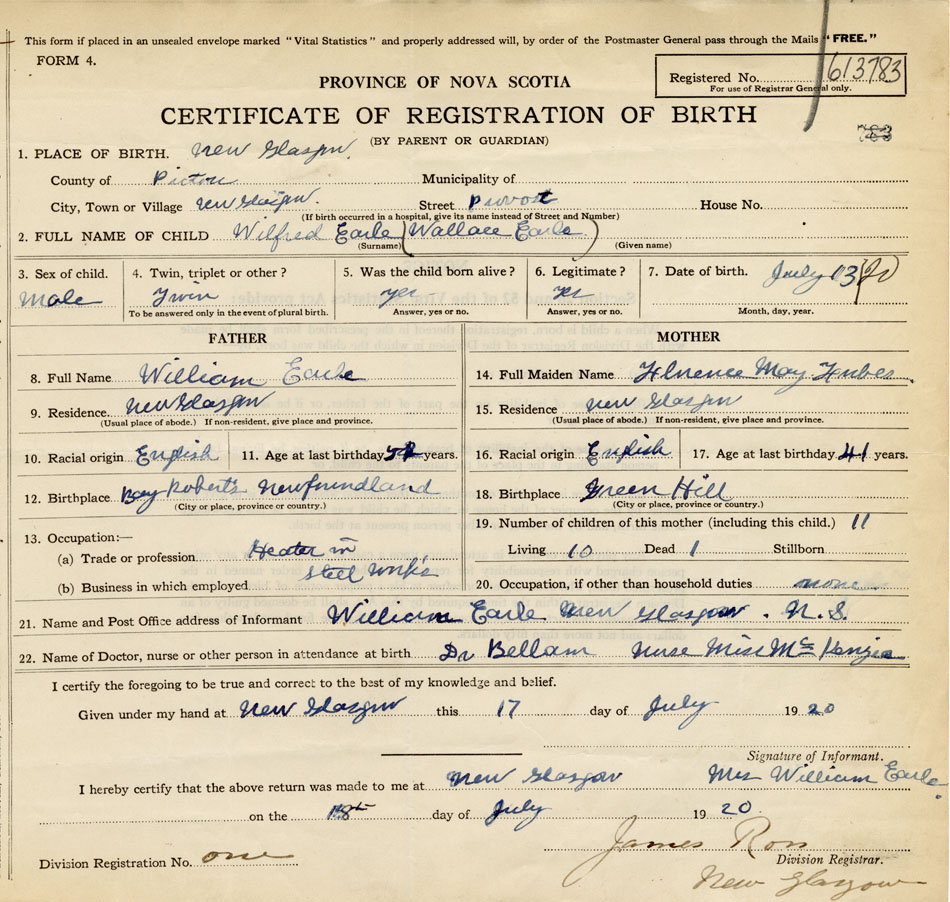 This form if placed in an unsealed envelope marked "Vital Statistics" and properly addressed will, by order of the Postmaster General pass through the Mails "FREE."
FORM 4.
Registered No. 613783
For use of Registrar General only.
PROVINCE OF NOVA SCOTIA
CERTIFICATE OF REGISTRATION OF BIRTH
(BY PARENT OR GUARDIAN)
1. PLACE OF BIRTH. New Glasgow
County of Pictou Municipality of
City, Town or Village New Glasgow. Street Provost House No.
(If birth occurred in a hospital, give its name instead of Street and Number)
2. FULL NAME OF CHILD Wilfred Earle (Wallace Earle)
(Surname) (Given name)
3. Sex of child. 4. Twin, triplet or other? 5. Was the child born alive? 6. Legitimate? 7. Date of birth. July 13/20
Male Twin yes yes
To be answered only in the event of plural birth. Answer, yes or no. Answer, yes or no. Month, day, year.
FATHER MOTHER
8. Full Name William Earle 14. Full Maiden Name Florence May
9. Residence New Glasgow 15. Residence New Glasgow
(Usual place of abode.) If non-resident, give place and province. (Usual place of abode.) If non-resident, give place and province.
10. Racial origin English 11. Age at last birthday years. 16. Racial origin English 17. Age at last birthday 41 years.
12. Birthplace Bay Roberts Newfoundland 18. Birthplace Green Hill
(City or place, province or country.) (City or place, province or country.)
13. Occupation:— 19. Number of children of this mother (including this child.) 11
(a) Trade or profession Heater in Living 10 Dead 1 Stillborn
(b) Business in which employed steel works 20. Occupation, if other than household duties none
21. Name and Post Office address of Informant William Earle New Glasgow. N.S.
22. Name of Doctor, nurse or other person in attendance at birth Dr Bellam Nurse Miss McKenzie
I certify the foregoing to be true and correct to the best of my knowledge and belief.
Given under my hand at New Glasgow this 17 day of July 1920
Signature of Informant.
I hereby certify that the above return was made to me at New Glasgow Mrs William Earle.
on the 18th day of July 1920
James Ross
Division Registration No. one Division Registrar.
New Glasgow